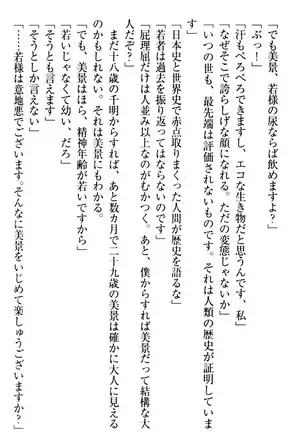 「でも美景、若様の尿ならば飲めますよ？」
「ぶっ！」
「汗もぺろぺろできますし、エコな生き物だと思うんです、私」
「なぜそこで誇らしげな顔になれる。ただの変態じゃないか」
「いつの世も、最先端は評価されないものです。それは人類の歴史が証明していま
す」
「日本史と世界史で赤点取りまくった人間が歴史を語るな」
「若者は過去を振り返ってはならないのです」
「屁理屈だけは人並み以上なのがむかつく。あと、僕からすれば美景だって結構な大
人だぞ？」
まだ十八歳の千明からすれば、あと数カ月で二十九歳の美景は確かに大人に見える
のかもしれない。それは美景にもわかる。
「でも、美景はほら、精神年齢が若いですから」
「若いじゃなくて幼い、だろ」
「そうとも言えます」
「そうとしか言えない」
「……若様は意地悪でございます。そんなに美景をいじめて楽しゅうございますか？」